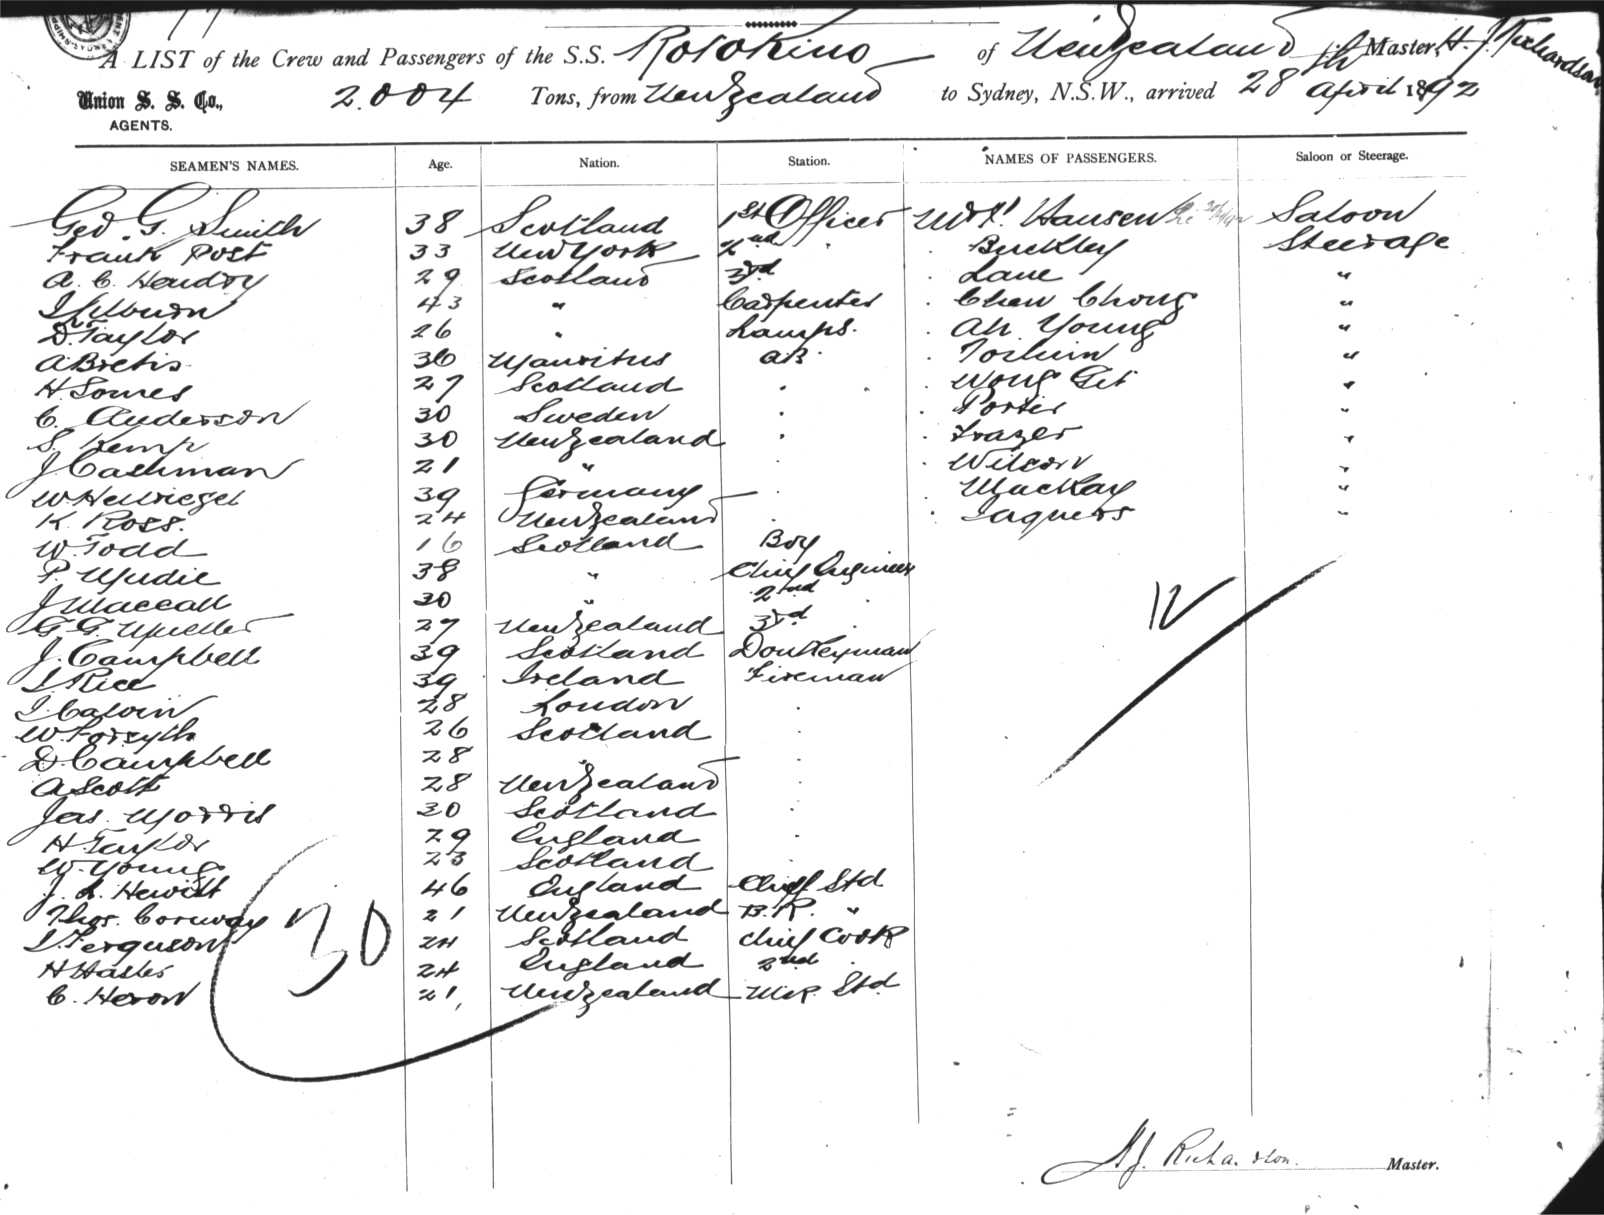 A LIST of the Crew and Passengers of the S.S. Rotokino of New Zealand Master, H. J. Richardson
Union S. S. Co., 2.004 Tons, from New Zealand to Sydney, N.S.W., arrived 28 April 1892
AGENTS.
SEAMEN'S NAMES. Age. Nation. Station. NAMES OF PASSENGERS. Saloon or Steerage.
Geo G. Smith 38 Scotland 1st Officer Mr Hansen Saloon
Frank Post 33 New York 2nd " Buckley Steerage
A. C. Hendry 29 Scotland 3rd Lane "
43 " Carpenter Chew Chong "
D. Taylor 26 " Lamps. Ah Young "
A Bretis 36 Mauritus AB "
H Somes 27 Scotland . Wong Get "
C. Anderson 30 Sweden . Porter "
S. Kemp 30 New Zealand . Frazer "
J Cashman 21 " . Wilson "
W. Hellriegel 39 Germany . MacKay "
K. Ross. 24 New Zealand . Jaquers "
W. Todd 16 Scotland Boy
P. Mudie 38 " Chief Engineer
J Maccall 30 " 2nd .
G. G. Mueller 27 New Zealand 3rd .
J. Campbell 39 Scotland Donkeyman
Rice 39 Ireland Fireman
Calvin 28 London .
W. Forsyth 26 Scotland .
D. Campbell 28 " .
A Scott 28 New Zealand .
Jas. Morris 30 Scotland .
H Taylor 29 England .
W. Young 23 Scotland .
J. L. Hewitt 46 England Chief Std
Thos. Conway 21 New Zealand B.R. "
Ferguson 24 Scotland Chief Cook
H Hasler 24 England 2nd .
C. Heron 21 New Zealand Std
30
12
H J. Richardson. Master.